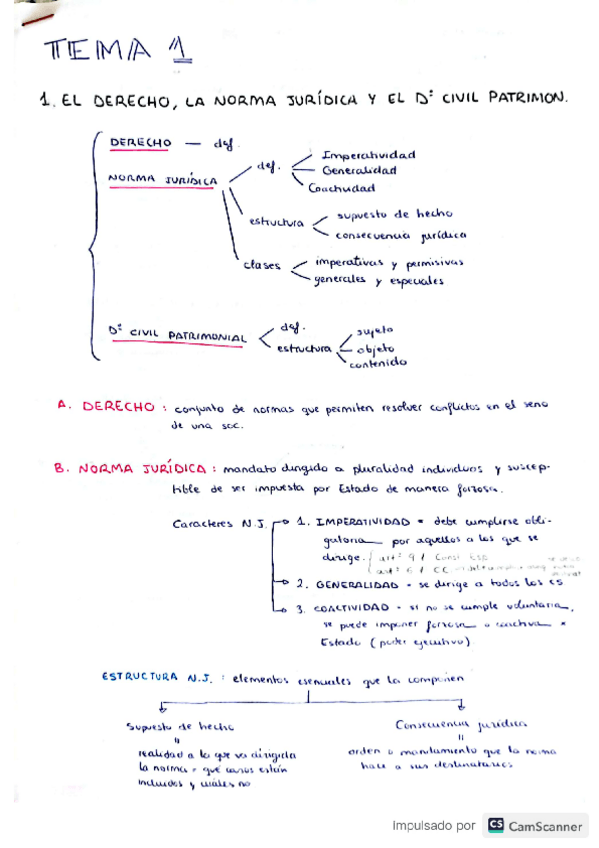 TEMA 1
1. EL DERECHO, LA NORMA JURÍDICA Y EL Dº CIVIL PATRIMON.
DERECHO — def.
NORMA JURÍDICA
def.
Imperatividad
Generalidad
Coactividad
estructura
supuesto de hecho
consecuencia jurídica
clases
imperativas y permisivas
generales y especiales
Dº CIVIL PATRIMONIAL
def.
estructura
sujeto
objeto
contenido
A. DERECHO : conjunto de normas que permiten resolver conflictos en el seno
de una soc.
B. NORMA JURÍDICA : mandato dirigido a pluralidad individuos y suscep-
tible de ser impuesta por Estado de manera forzosa.
Caracteres N.J.
1. IMPERATIVIDAD = debe cumplirse obli-
gatoria por aquellos a los que se
dirige. art º 9 / Const Esp
art º 6 / CC
2. GENERALIDAD = se dirige a todos los
3. COACTIVIDAD = si no se cumple voluntaria,
se puede imponer forzosa o coactiva =
Estado (poder ejecutivo)
ESTRUCTURA N.J. : elementos esenciales que la componen
Supuesto de hecho
=
realidad a la que va dirigida
la norma = qué casos están
incluidos y cuáles no
Consecuencia jurídica
=
orden o mandamiento que la norma
hace a sus destinatarios
Impulsado por CS CamScanner